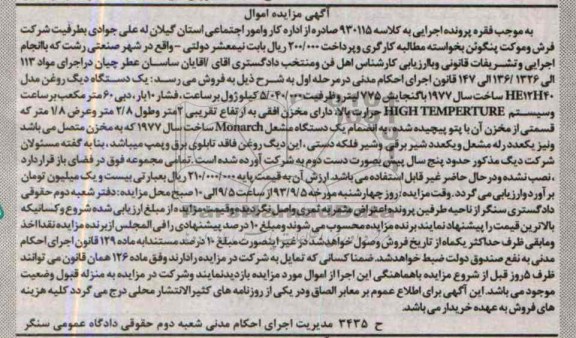 آگهی مزایده اموال
به موجب فقره پرونده اجرایی به کلاسه ۹۳۰۱۱۵ صادره از اداره کار وامور اجتماعی استان گیلان له علی جوادی بطرفیت شرکت
فرش وموکت پنگوئن بخواسته مطالبه کارگری وپرداخت ۲۰۰/۰۰۰ ریال بابت نیمعشر دولتی - واقع در شهر صنعتی رشت که باانجام
اجرایی وتشریفات قانونی وباارزیابی کارشناس اهل فن ومنتخب دادگستری اقای /اقایان ساسان عطر چیان دراجرای مواد ۱۱۳
الی ۱۳۲۶ /۱۳۶ الی ۱۴۷ قانون اجرای احکام مدنی درمرحله اول به شرح ذیل به فروش می رسد: یک دستگاه دیگ روغن مدل
HE۱۲H۴۰ ساخت سال ۱۹۷۷ باگنجایش ۷۷۵ لیتر وظرفیت ۵/۰۴۰/۰۰۰ کیلو ژول بر ساعت. فشار ۱۰ بار، دبی ۶۰ متر مکعب بر ساعت
وسیستم HIGH TEMPERTURE حرارت بالا، دارای مخزن افقی به ارتفاع تقریبی ۲ متر وطول ۲/۸ متر وعرض ۱/۸ متر که
قسمتی از مخزن آن با پتو پیچیده شده، به انضمام یک دستگاه مشعل Monarch ساخت سال ۱۹۷۷ که به مخزن متصل می باشد
ونیز یکعدد رله مشعل ویکعدد شیر برقی وشیر فلکه دستی، این دیگ روغن فاقد تابلوی برق وپمپ میباشد، بنا به گفته مسئولان
شرکت دیگ مذکور حدود پنج سال پیش بصورت دست دوم به شرکت آورده شده است. تمامی مجموعه فوق در فضای باز قرار دارد
، نصب نشده ودر حال حاضر غیر قابل استفاده می باشد. ارزش آن به قیمت پایه ۲۱/۰۰۰/۰۰۰ ریال بعبارتی بیست و یک میلیون تومان
بر آورد وارزیابی می گردد. وقت مزایده: روز چهارشنبه مورخه ۹۳/۹/۵ از ساعت ۹/۵ الی ۱۰ صبح محل مزایده: دفتر شعبه دوم حقوقی
دادگستری سنگر از ناحیه طرفین پرونده اعتراض به نظریه تئوری واصل نگردیده وقیمت مزایده از مبلغ ارزیابی شده شروع وکسانیکه
بالاترین قیمت را پیشنهاد نمایند برنده مزایده محسوب می شوند ومبلغ ۱۰ درصد پیشنهادی رافی المجلس از برنده مزایده نقدا اخذ
ومابقی ظرف حداکثر یکماه از تاریخ فروش وصول خواهد شد در غیر اینصورت مبلغ ۱۰ درصد مستندا به ماده ۱۲۹ قانون اجرای احکام
مدنی به نفع صندوق دولت ضبط خواهد شد. ضمنا کسانی که تمایل به شرکت در مزایده را دارند وفق ماده ۱۲۶ همان قانون می توانند
ظرف ۵ روز قبل از شروع مزایده باهماهنگی این اجرا از اموال مورد مزایده بازدید نمایند وشرکت در مزایده به منزله قبول وضعیت
موجود می باشد. این آگهی برای اطلاع عموم بر معابر الصاق ودر یکی از روزنامه های کثیرالانتشار محلی درج می گردد کلیه هزینه
های فروش به عهده خریدار می باشد.
ح ۳۴۳۵ مدیریت اجرای احکام مدنی شعبه دوم حقوقی دادگاه عمومی سنگر